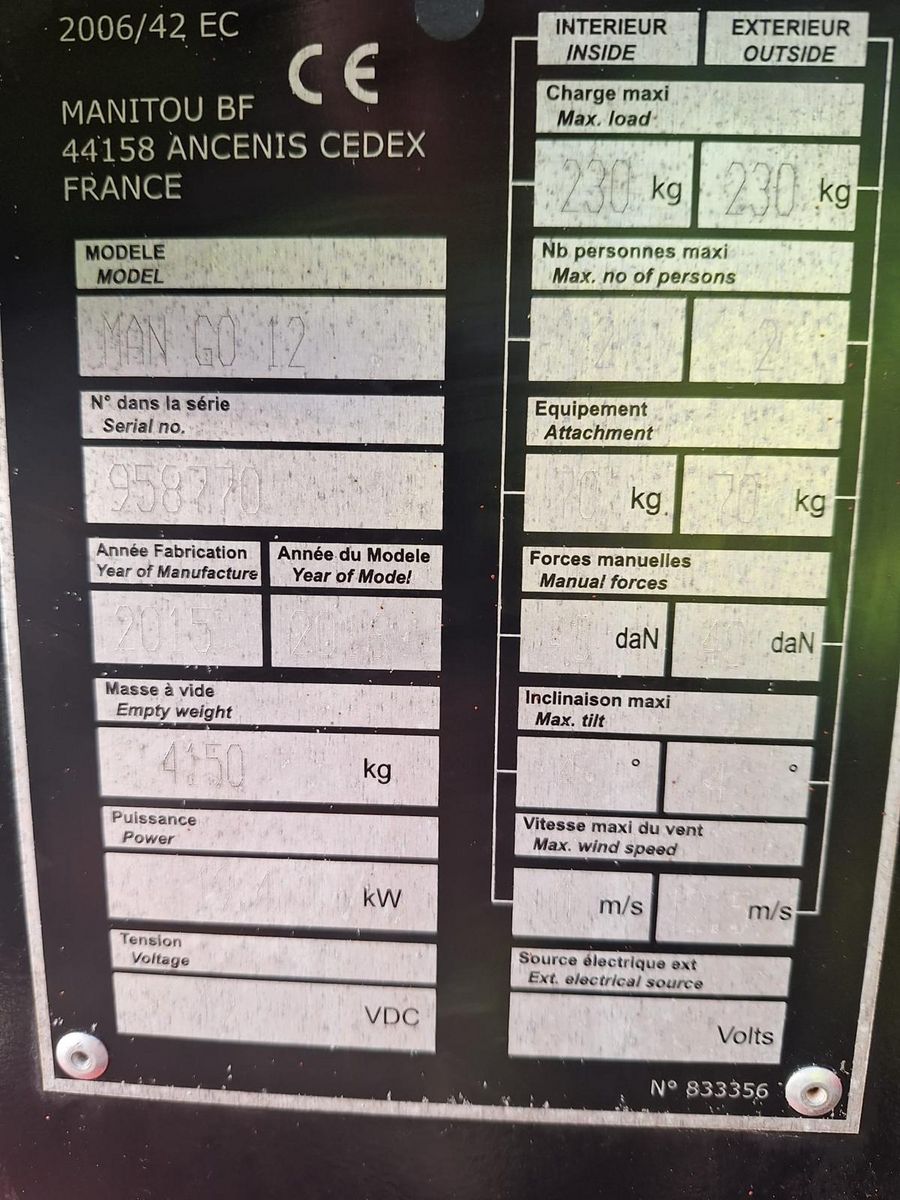 2006/42 EC
CE
MANITOU BF
44158 ANCENIS CEDEX
FRANCE
MODELE
MODEL
MAN GO 12
N° dans la série
Serial no.
958770
Année Fabrication
Year of Manufacture
2015
Année du Modele
Year of Model
Masse à vide
Empty weight
4150 kg
Puissance
Power
kW
Tension
Voltage
VDC
INTERIEUR
INSIDE
EXTERIEUR
OUTSIDE
Charge maxi
Max. load
230 kg
230 kg
Nb personnes maxi
Max. no of persons
2
2
Equipement
Attachment
70 kg
70 kg
Forces manuelles
Manual forces
daN
daN
Inclinaison maxi
Max. tilt
°
°
Vitesse maxi du vent
Max. wind speed
m/s
m/s
Source électrique ext
Ext. electrical source
Volts
N° 833356